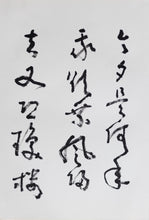 今夕是何年
我欲乘風歸
去又恐瓊樓